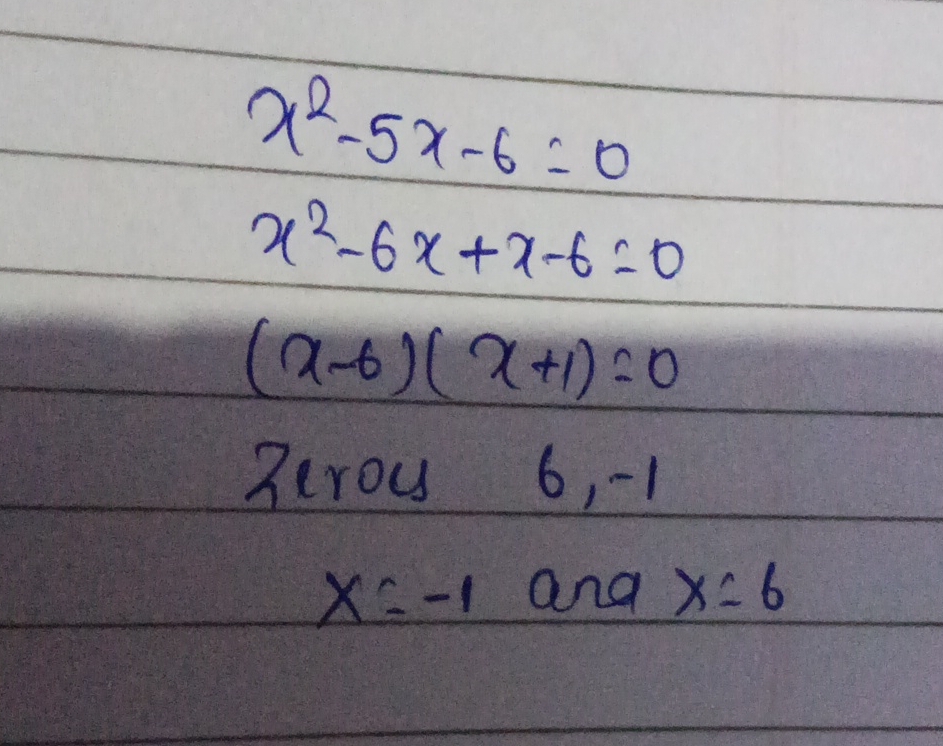 x²-5x-6=0
x²-6x+x-6=0
(x-6)(x+1)=0
Zeroes 6,-1
x=-1 and x=6